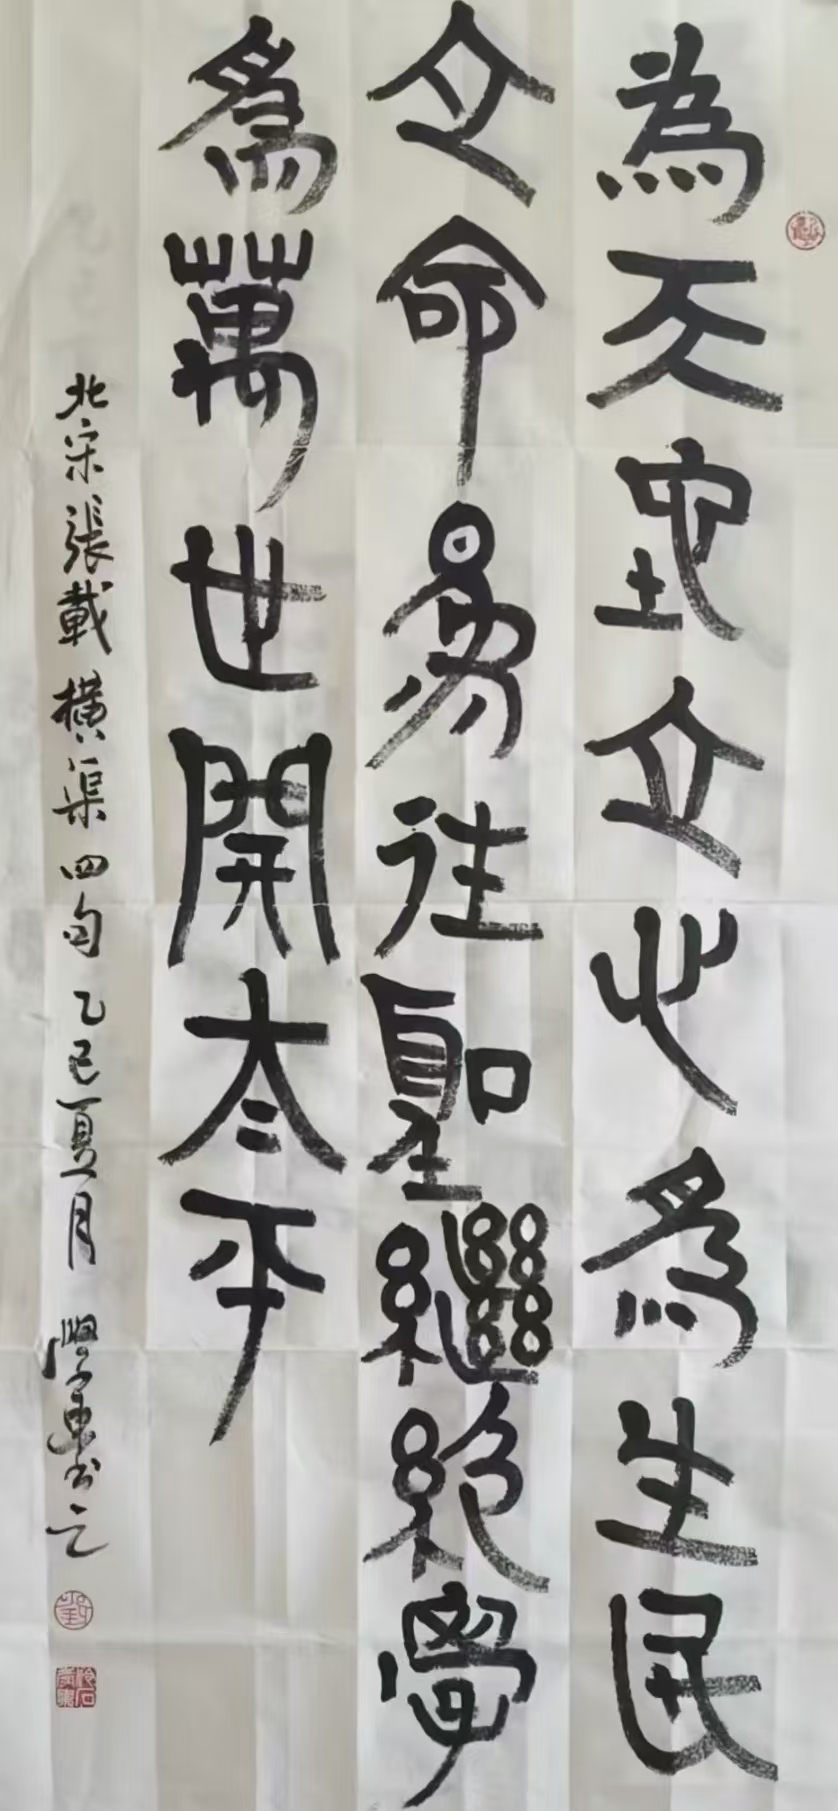 為天地立心為生民
立命為往聖繼絕學
為萬世開太平
北宋張載橫渠四句 乙巳夏月 東書之